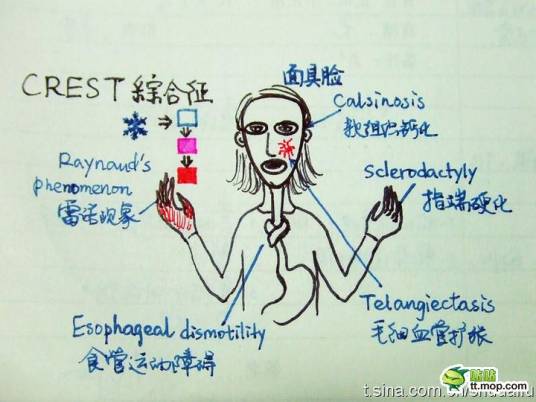 面具脸
CREST 綜合征
Calsinosis
软组织钙化
Raynaud's
phenomenon
雷诺现象
sclerodactyly
指端硬化
Telangiectasis
毛细血管扩张
Esophageal dismotility
食管运动障碍
贴贴
tt.mop.com